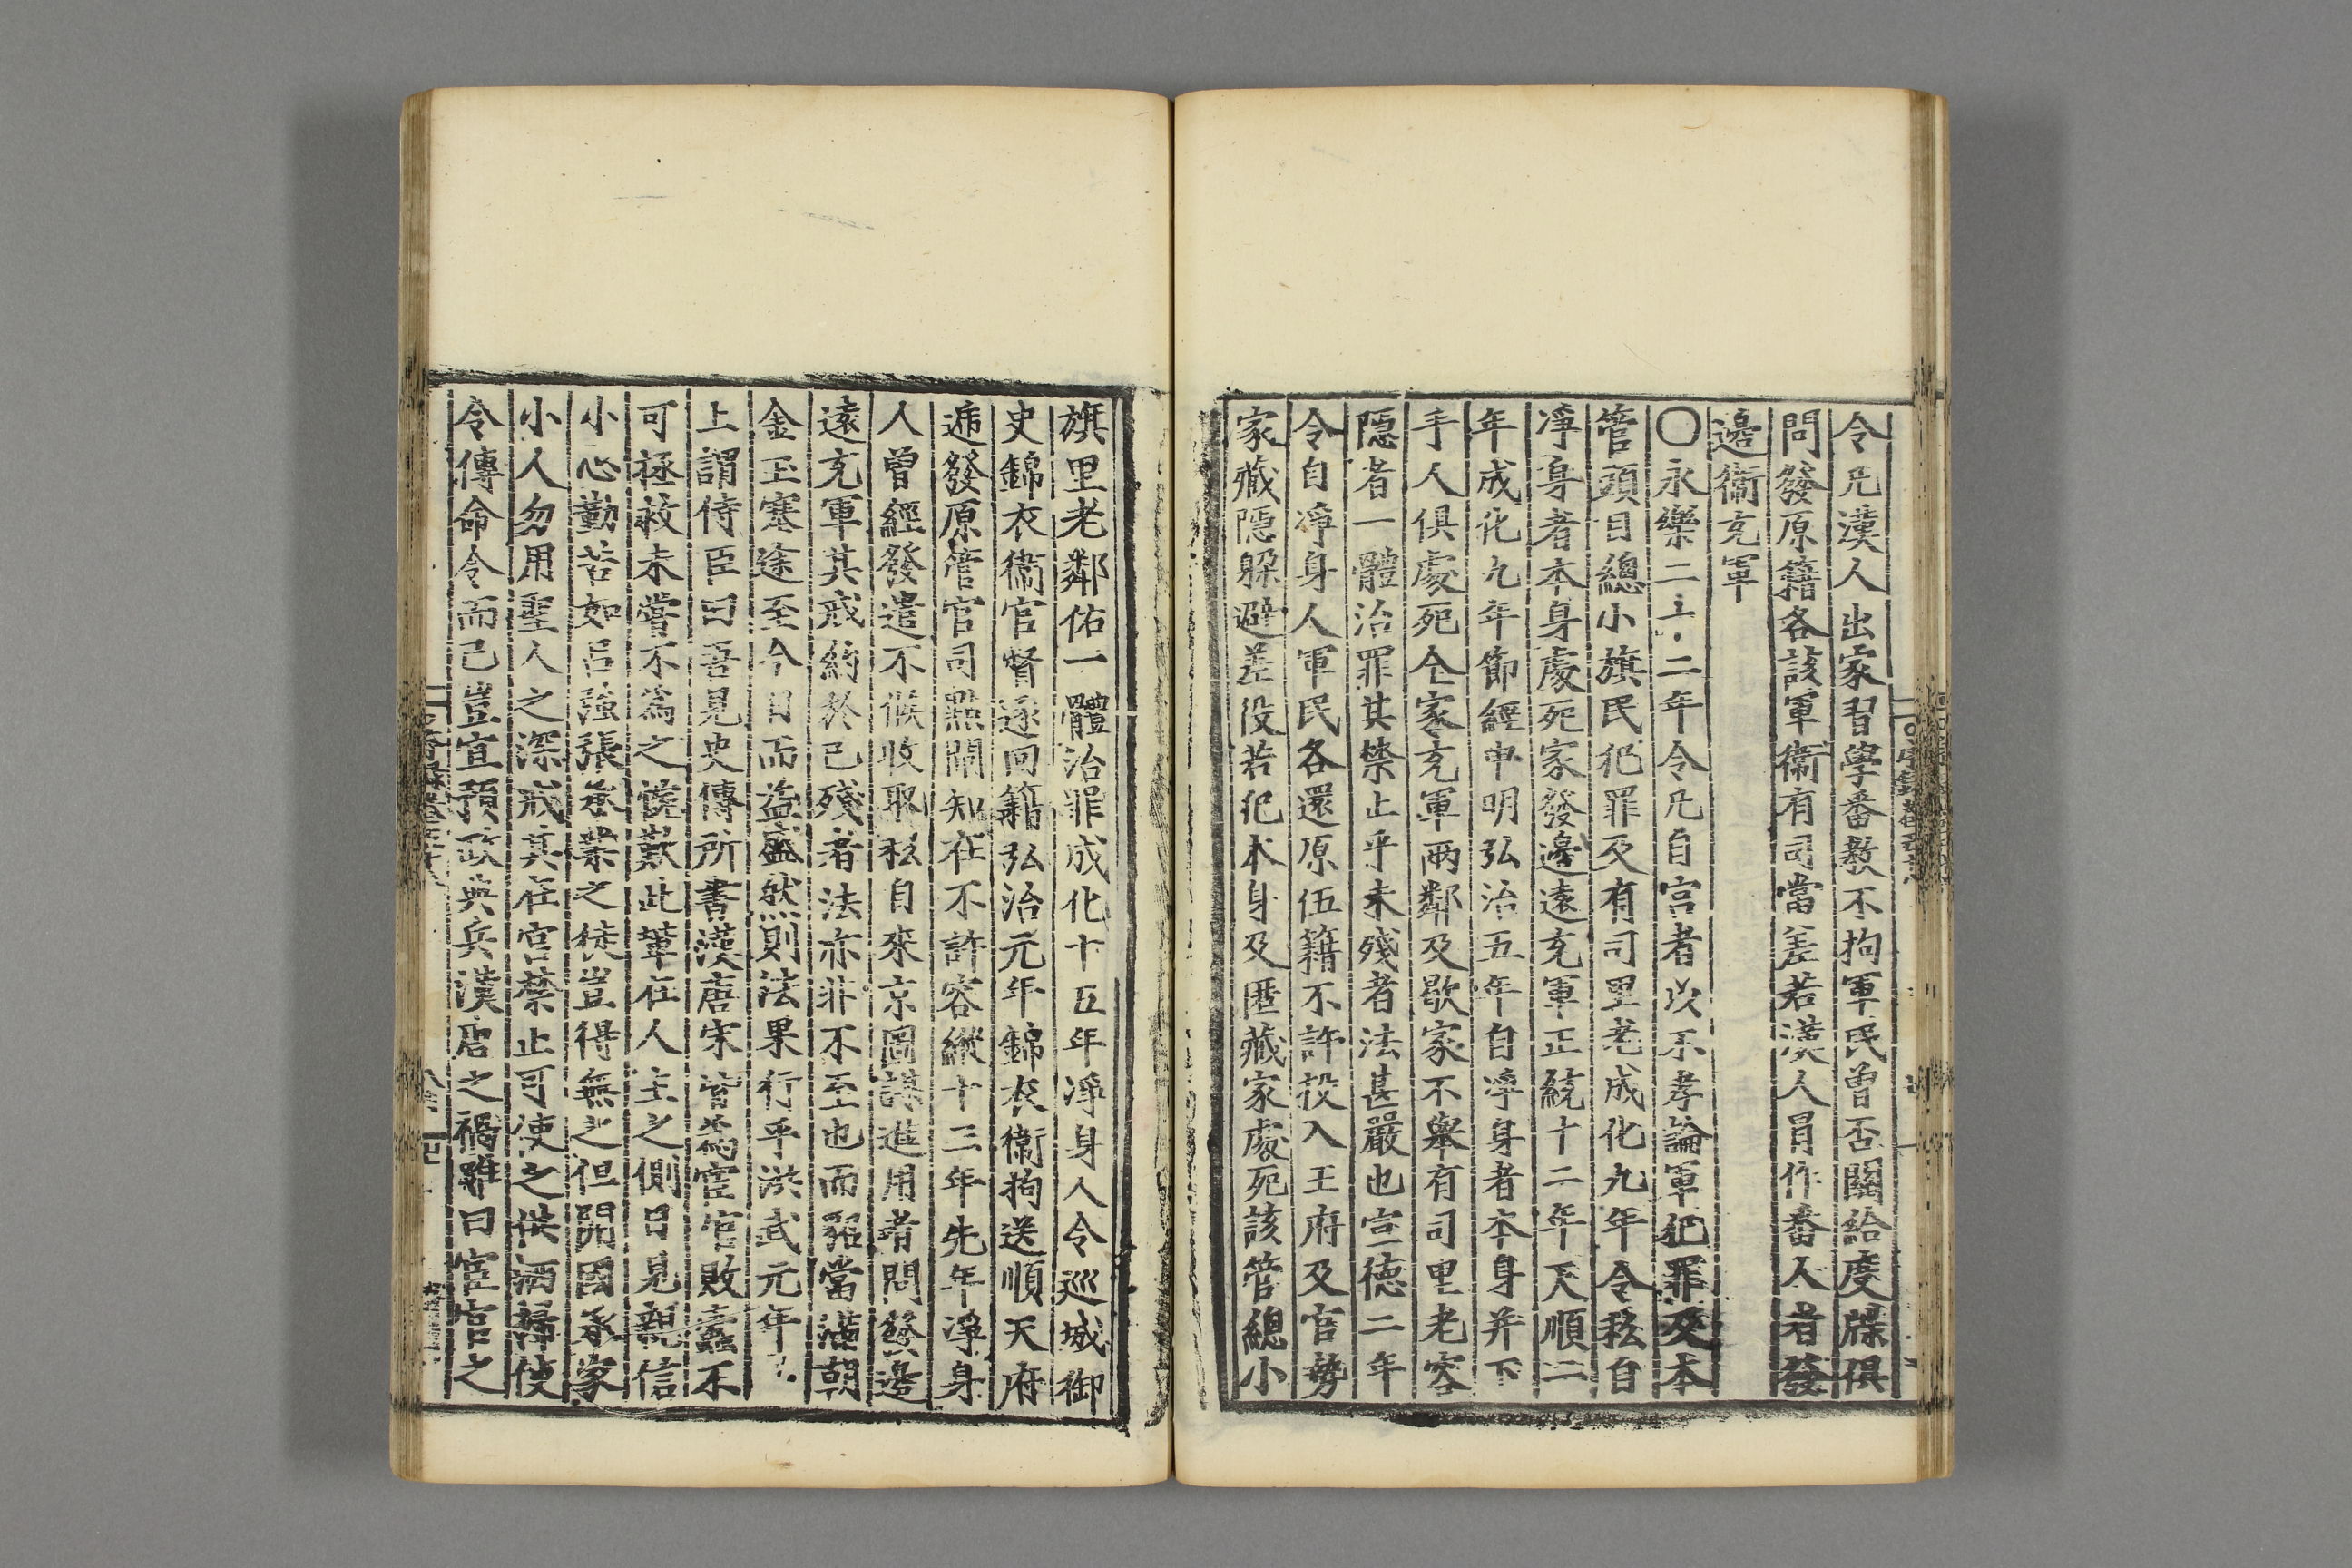 令凡漢人出家習學番教不拘軍民曾否關給度牒俱
問發原籍各該軍衛有司當差若漢人冒作番人者發
邊衛充軍
〇永樂二十二年令凡自宮者以不孝論軍犯罪及本
管頭目總小旗民犯罪及有司里老成化九年令私自
凈身者本身處死家發邊遠充軍正統十二年天順二
年成化九年節經申明弘治五年自凈身者本身并下
手人俱處死仝家充軍兩鄰及歇家不舉有司里老容
隱者一體治罪其禁止乎未殘者法甚嚴也宣德二年
令自凈身人軍民各還原伍籍不許投入王府及官勢
家藏隱躲避差役若犯本身及匿藏家處死該管總小
旗里老鄰佑一體治罪成化十五年凈身人令巡城御
史錦衣衛官督逐回籍弘治元年錦衣衛拘送順天府
遞發原管官司點閘知在不許容縱十三年先年凈身
人曾經發遣不候收取私自來京圖謀進用者問發邊
遠充軍其戒約於已殘者法亦非不至也而貂當滿朝
金玉塞途至今日而益盛然則法果行乎洪武元年
上謂侍臣曰吾見史傳所書漢唐宋皆為宦官敗蠹不
可拯救未嘗不為之惋歎此輩在人主之側日見親信
小心勤苦如呂強張承業之徒豈得無之但開國承家
小人勿用聖人之深戒其在宮禁止可使之供洒掃使
令傳命令而已豈宜預政典兵漢唐之禍雖曰宦官之